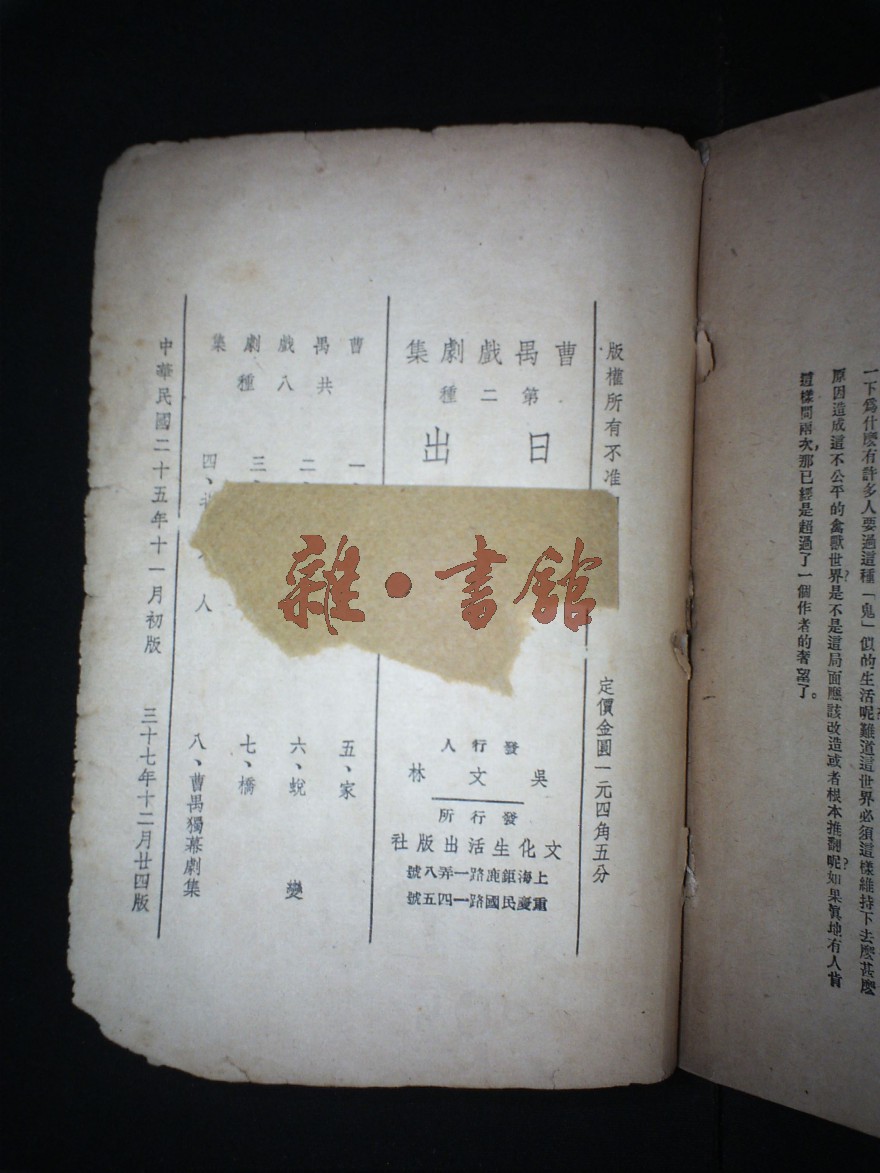 一下爲什麽有許多人要過這種「鬼」似的生活呢難道這世界必須這樣維持下去麽甚麽
原因造成這不公平的禽獸世界?是不是這局面應該改造或者根本推翻呢?如果眞地有人肯
這樣問兩次,那已經是超過了一個作者的奢望了。
版權所有不准
定價金圓一元四角五分
曹禺戲劇集
第二種
日出
發行人
吳文林
發行所
文化生活出版社
上海鉅鹿路一弄八號
重慶民國路一四五號
曹禺戲劇集
共八種
一、
二、
三、
四、 人
五、家
六、蛻變
七、橋
八、曹禺獨幕劇集
中華民國二十五年十一月初版
三十七年十二月廿四版
雜·書館